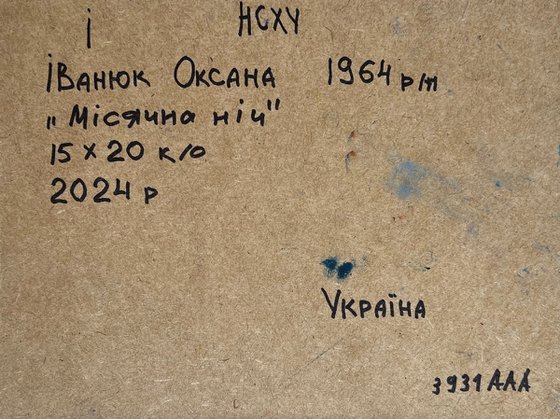 І НСХУ
Іванюк Оксана 1964 р/н
„Місячна ніч"
15 х 20 к/о
2024 р
Україна
3931 ААА